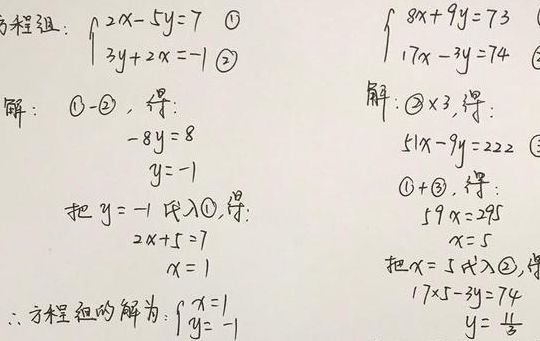 方程组: { 2x-5y=7 ①
3y+2x=-1 ②
解: ①-②, 得:
-8y=8
y=-1
把 y=-1 代入①, 得:
2x+5=7
x=1
∴方程组的解为: { x=1
y=-1
{ 8x+9y=73
17x-3y=74
解: ②×3, 得:
51x-9y=222
①+③, 得:
59x=295
x=5
把x=5代入②, 得
17×5-3y=74
y=11/3